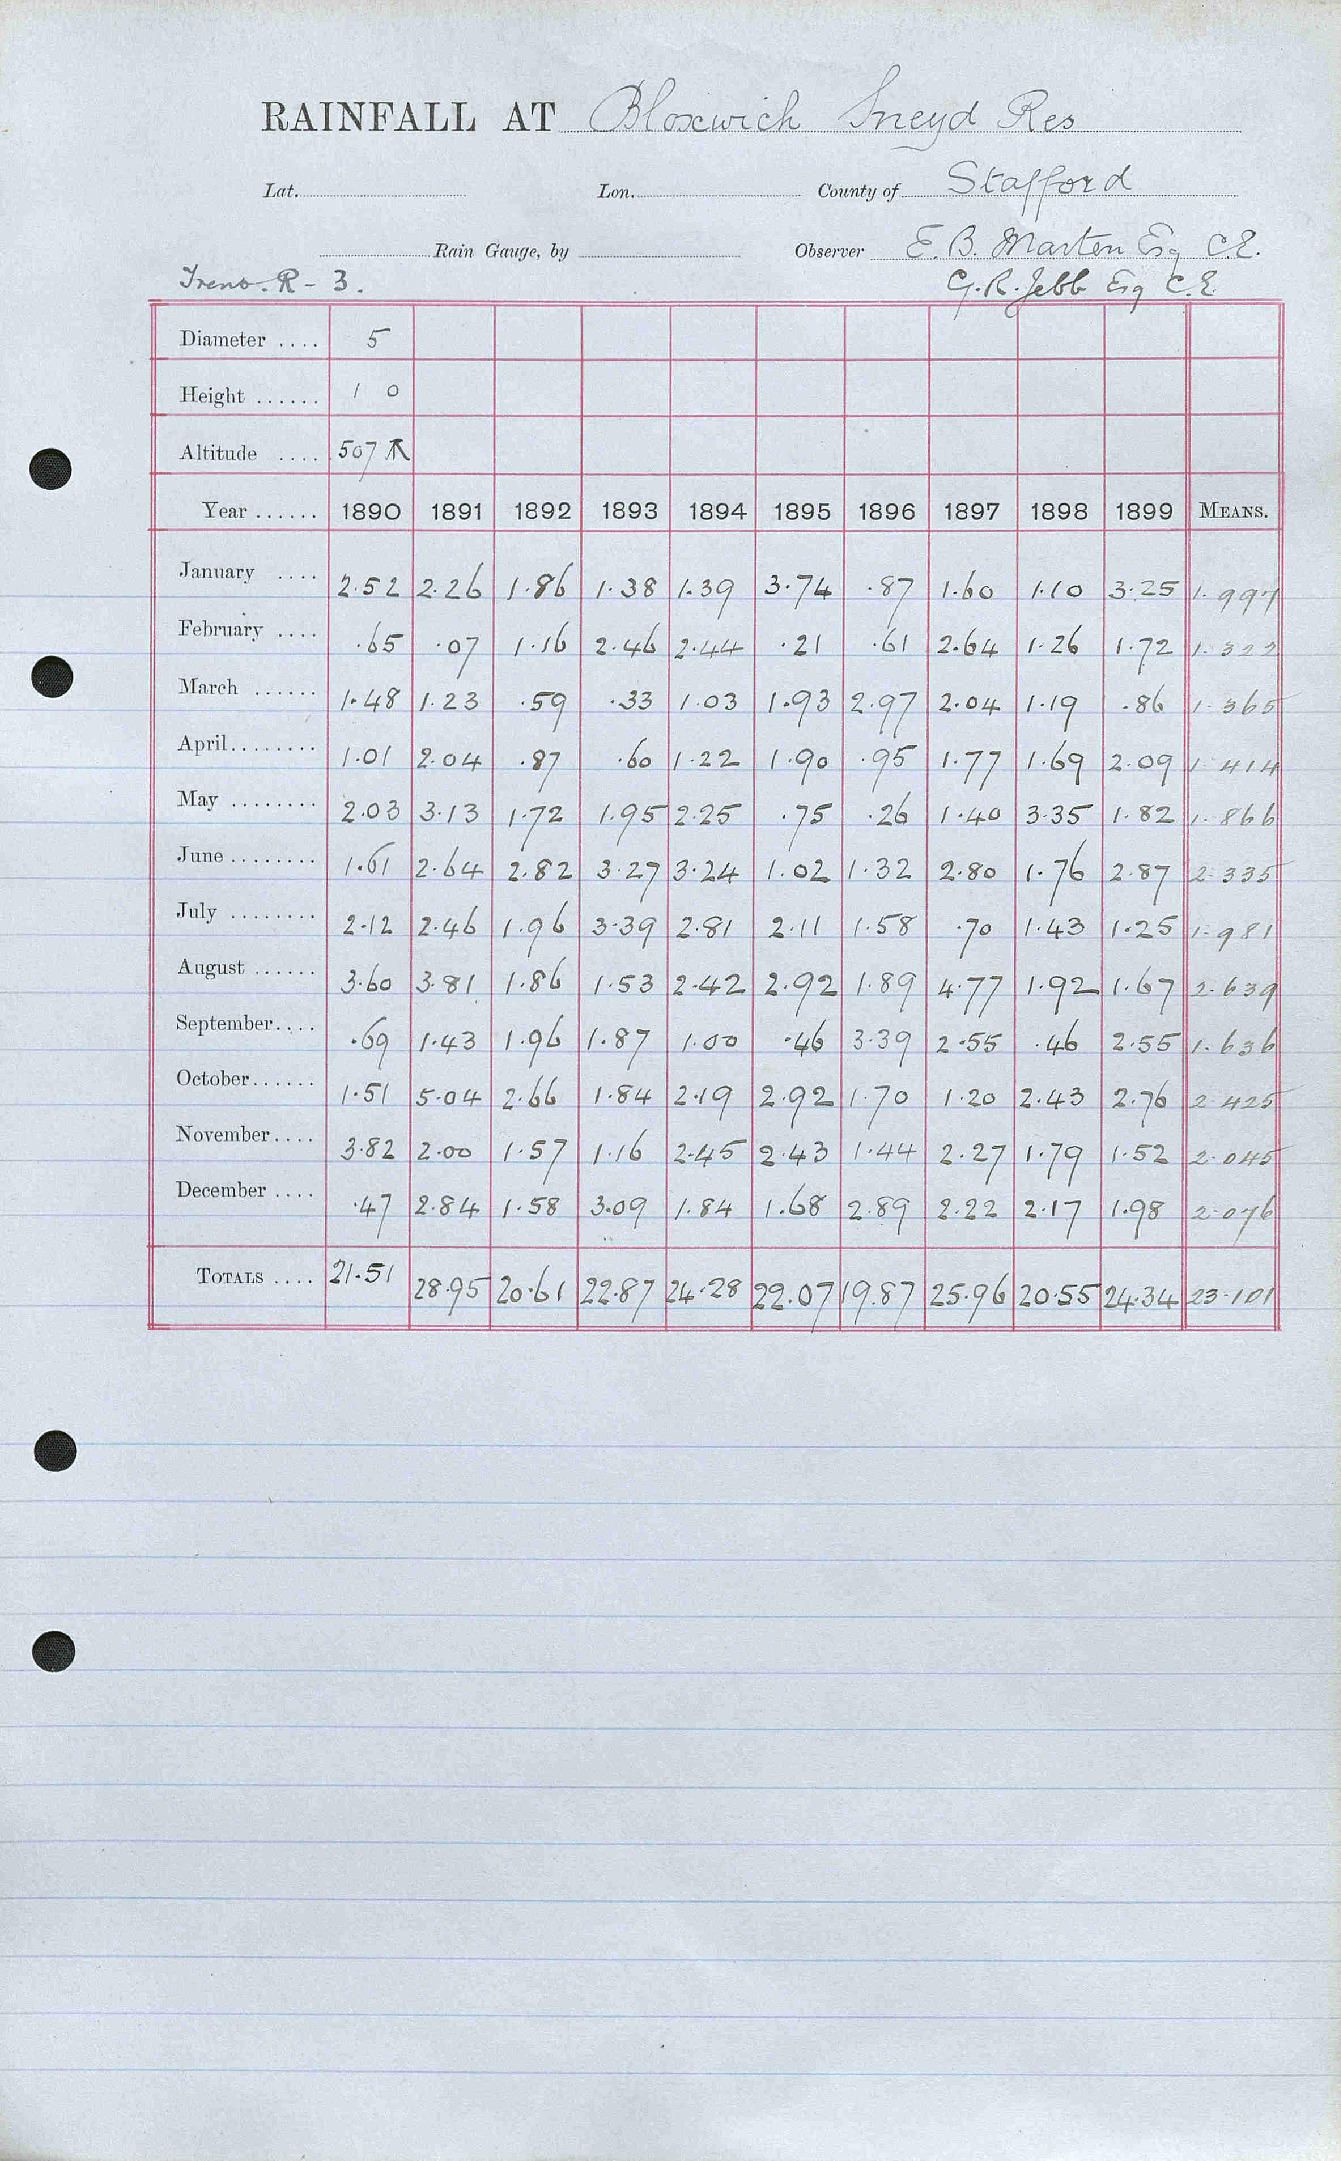 RAINFALL AT Bloxwich Sneyd Res
Lat. Lon. County of Stafford
Rain Gauge, by Observer E. B. Marten Esq C.E.
R - 3. G. R. Jebb Esq C.E.
Diameter .... 5
Height ...... 1 0
Altitude .... 507
Year ...... 1890 1891 1892 1893 1894 1895 1896 1897 1898 1899 MEANS.
January .... 2.52 2.26 1.86 1.38 1.39 3.74 .87 1.60 1.10 3.25 1.997
February .... .65 .07 1.16 2.46 2.44 .21 .61 2.64 1.26 1.72 1.322
March ...... 1.48 1.23 .59 .33 1.03 1.93 2.97 2.04 1.19 .86 1.365
April........ 1.01 2.04 .87 .60 1.22 1.90 .95 1.77 1.69 2.09 1.414
May ........ 2.03 3.13 1.72 1.95 2.25 .75 .26 1.40 3.35 1.82 1.866
June ........ 1.61 2.64 2.82 3.27 3.24 1.02 1.32 2.80 1.76 2.87 2.335
July ........ 2.12 2.46 1.96 3.39 2.81 2.11 1.58 .70 1.43 1.25 1.981
August ...... 3.60 3.81 1.86 1.53 2.42 2.92 1.89 4.77 1.92 1.67 2.639
September.... .69 1.43 1.96 1.87 1.00 .46 3.39 2.55 .46 2.55 1.636
October...... 1.51 5.04 2.66 1.84 2.19 2.92 1.70 1.20 2.43 2.76 2.425
November.... 3.82 2.00 1.57 1.16 2.45 2.43 1.44 2.27 1.79 1.52 2.045
December .... .47 2.84 1.58 3.09 1.84 1.68 2.89 2.22 2.17 1.98 2.076
TOTALS .... 21.51 28.95 20.61 22.87 24.28 22.07 19.87 25.96 20.55 24.34 23.101